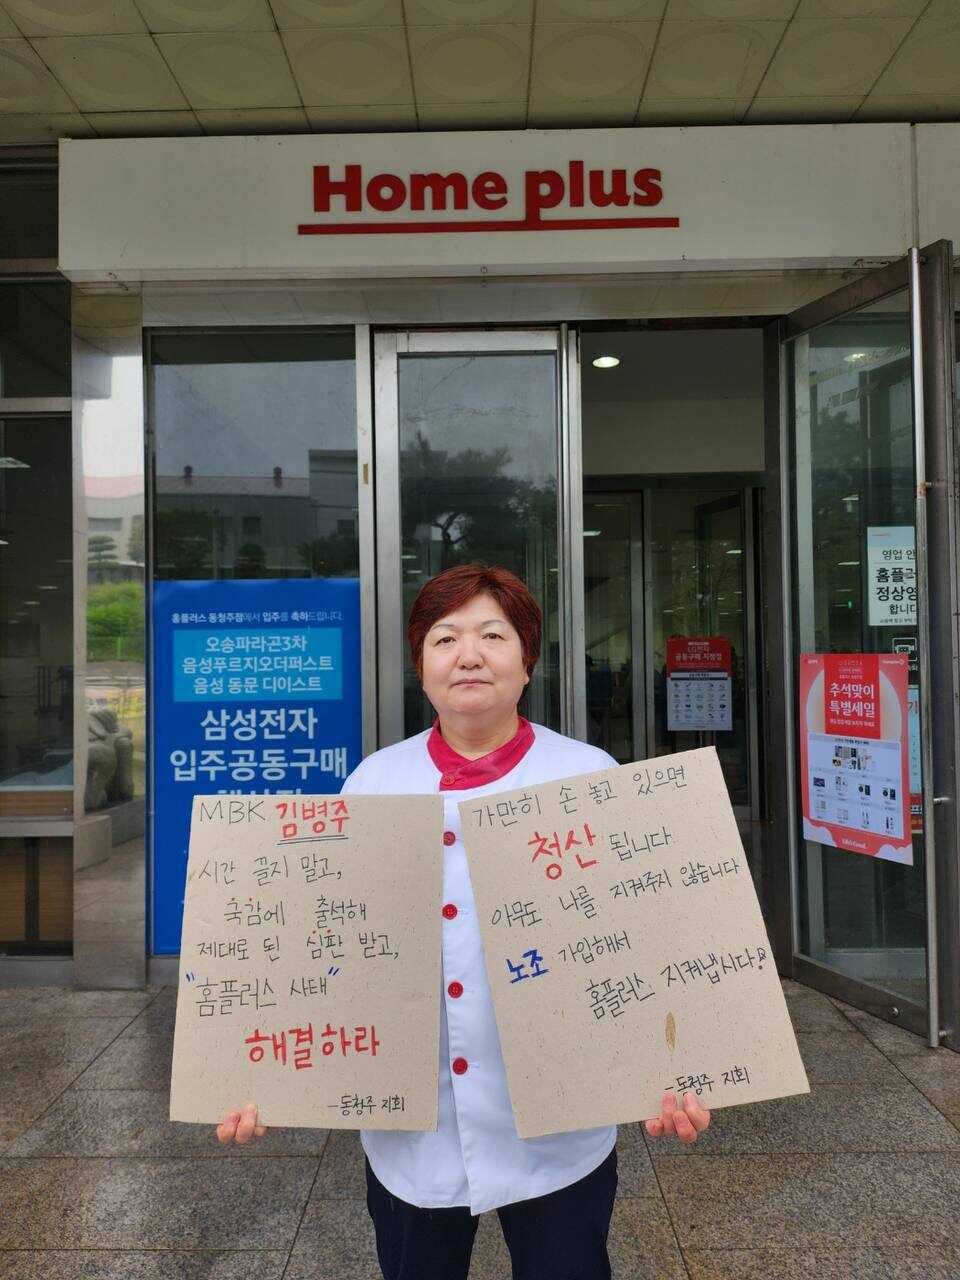 Home plus
홈플러스 동청주점에서 입주를 축하드립니다.
오송파라곤3차
음성푸르지오더퍼스트
음성 동문 디이스트
삼성전자
입주공동구매
MBK 김병주
시간 끌지 말고,
국감에 출석해
제대로 된 심판 받고,
"홈플러스 사태"
해결하라
-동청주 지회
가만히 손 놓고 있으면
청산 됩니다
아무도 나를 지켜주지 않습니다
노조 가입해서
홈플러스 지켜냅시다!
-동청주 지회
LG전자
공동구매 지정점
추석맞이
특별세일
영업 안
홈플러스
정상영
합니다